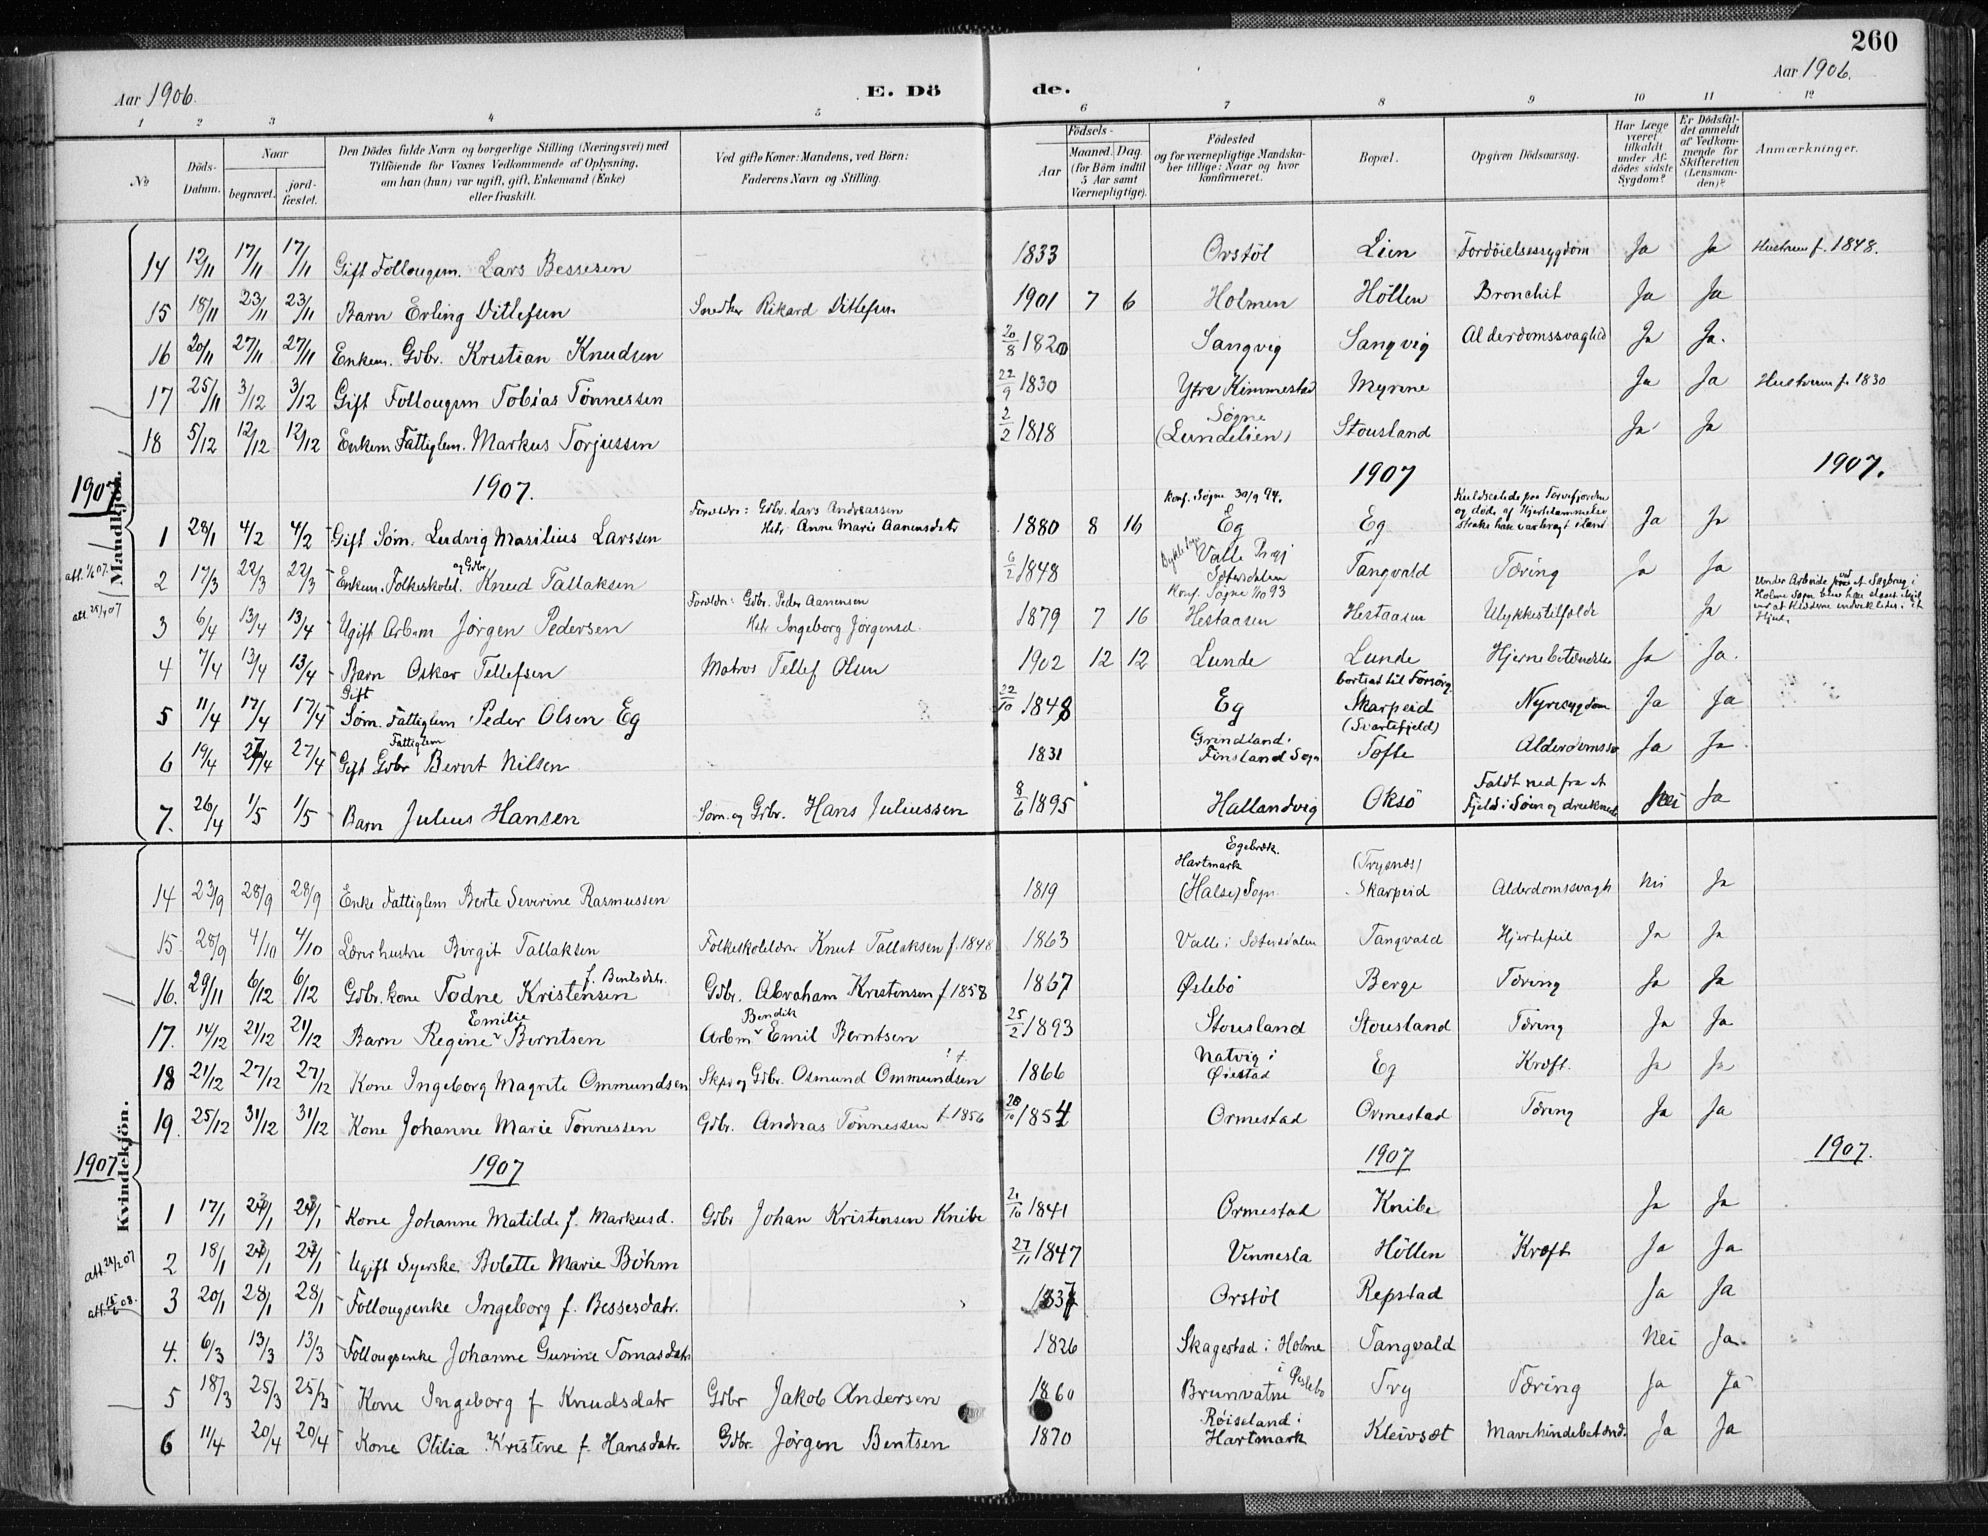 260
Aar 1906.
E. Dö de.
Aar 1906.
1 2 3 4 5 6 7 8 9 10 11 12
No
Döds-Datum.
Naar
begravet.
jord-fæstet.
Den Dödes fulde Navn og borgerlige Stilling (Næringsvei) med
Tilföiende for Voxnes Vedkommende af Oplysning,
om han (hun) var ugift, gift, Enkemand (Enke)
eller fraskilt.
Ved gifte Koner: Mandens, ved Börn:
Faderens Navn og Stilling.
Födsels-
Aar
Maaned. Dag
(for Börn indtil
5 Aar samt
Værnepligtige).
Födested
og for værnepligtige Mandska-
ber tillige: Naar og hvor
konfirmeret.
Bopæl.
Opgiven Dödsaarsag.
Har Læge
været
tilkaldt
under Af-
dödes sidste
Sygdom?
Er Dödsfal-
det anmeldt
af Vedkom-
mende for
Skifteretten
(Lensman-
den)?
Anmærkninger.
Mandkjön.
14 12/11 17/11 17/11 Gift Follougsm. Lars Bessesen 1833 Orstöl Lien Fordöielsessygdom Ja Ja Hustrun f. 1848.
15 18/11 23/11 23/11 Barn Erling Ditlefsen Snedker Rikard Ditlefsen 1901 7 6 Holmen Höllen Bronchit Ja Ja
16 20/11 27/11 27/11 Enkem. Gdbr. Kristian Knudsen 20/8 1820 Sangvig Sangvig Alderdomssvaghed Ja Ja.
17 25/11 3/12 3/12 Gift Follougsm Tobias Tönnessen 22/9 1830 Ytre Kimmestad Myrene Ja Ja Hustruen f. 1830
18 5/12 12/12 12/12 Enkem Fattiglem. Markus Torjussen 2/2 1818 Søgne (Lundelien) Stousland Ja Ja
1907 1907. 1907 1907.
1 28/1 4/2 4/2 Gift Søm. Ludvig Masilius Larssen Foreldre: Gdbr. Lars Andreassen Hstr Anne Marie Aanensdatr 1880 8 16 Konf. Søgne 30/9 94. Eg Eg Ja Ja
att. 1/6 07.
2 17/3 22/3 22/3 Enkem. Folkeskolel. og Gdbr Knud Tallaksen 6/2 1848 Valle Præj Sætersdalen Tangvald Tæring Ja Ja
att. 25/1 07
3 6/4 13/4 13/4 Ugift Arbm Jörgen Pedersen Foreldre: Gdbr. Peder Aanensen Hstr Ingeborg Jörgensd. 1879 7 16 Konf. Søgne 1/10 93 Hestaasen Hestaasen Ulykkestilfælde Ja
4 7/4 13/4 13/4 Barn Oskar Tellefsen Matros Tellef Olsen 1902 12 12 Lunde Lunde Hjernebetændelse Ja Ja.
5 11/4 17/4 17/4 Gift Søm. Fattiglem Peder Olsen Eg 22/10 1848 Eg bortsat til Forsørg. Skarpeid (Svartefjeld) Nyresygdom Ja Ja
6 19/4 27/4 27/4 Gift Gdbr Fattiglem Berrnt Nilsen 1831 Grindland. Finsland Sogn Tofte Alderdomssv Ja Ja
7. 26/4 1/5 1/5 Barn Julius Hansen Søm. og Gdbr. Hans Juliussen 8/6 1895 Hallandvig Oksö Faldt ned fra et Fjeld i Søen og druknede Nei Ja
Kvindekjön.
14 23/9 28/9 28/9 Enke Fattiglem Berte Severine Rasmussen 1819 Egebæk. Hartmark (Halse) Sogn (Trysnæs) Skarpeid Alderdomssvagh Nei Ja
15 28/9 4/10 4/10 Lærerhustru Birgit Tallaksen Folkeskolelærer Knut Tallaksen f. 1848 1863 Valle i Sætersdalen Tangvald Hjertefeil Ja Ja
16. 29/11 6/12 6/12 Gdbr. kone Todne Kristensen f. Bentsdatr. Gdbr. Abraham Kristensen f 1858 1867 Øslebö Berge Tæring Ja Ja
17. 14/12 21/12 21/12 Barn Regine Emilie Berntsen Arbm Bendik Emil Berntsen 25/2 1893 Stousland Stousland Tæring Ja Ja
18 21/12 27/12 27/12 Kone Ingeborg Magrete Ommundsen Skpr og Gdbr. Osmund Ommundsen 1866 Natvig i Øiestad Eg Kræft. Ja Ja
19. 25/12 31/12 31/12 Kone Johanne Marie Tönnessen Gdbr. Andreas Tönnessen f. 1856 1854 Ormestad Ormestad Tæring Ja Ja
1907 1907 1907 1907.
1 17/1 Kone Johanne Matilde f. Markusd. Gdbr Johan Kristensen Knibe 1841 Ormestad Knibe Ja Ja
2 18/1 Ugift Syerske Bolette Marie Böhm 27/11 1847 Vennesla Höllen Kræft Ja Ja
3 20/1 28/1 28/1 Follougsenke Ingeborg f. Bessesdatr. 1837 Orstöl Repstad Ja Ja
4. 6/3 13/3 13/3 Follougsenke Johanne Gurine Tomasdatr 1826 Skagestad i Holme Tangvald Nei Ja.
5 18/3 25/3 25/3 Kone Ingeborg f Knudsdatr Gdbr Jakob Andersen 1860 Brunvatne i Øslebo Try Tæring Ja Ja
6 11/4 20/4 20/4 Kone Otilia Kristine f. Hansdatr. Gdbr. Jörgen Bentsen 1870 Röiseland i Hartmark Kleivsæt Mavehindebetænd. Ja Ja